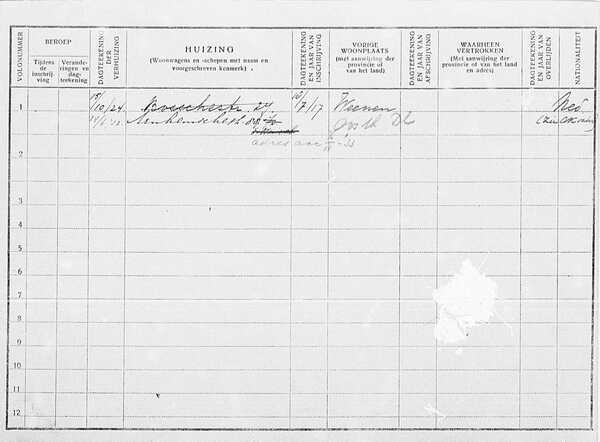 VOLGNUMMER
BEROEP
Tijdens de inschrijving
Veranderingen en dagteekening
DAGTEEKENING DER VERHUIZING
HUIZING
(Woonwagens en -schepen met naam en voorgeschreven kenmerk).
DAGTEEKENING EN JAAR VAN INSCHRIJVING
VORIGE WOONPLAATS
(met aanwijzing der provincie of van het land)
DAGTEEKENING EN JAAR VAN AFSCHRIJVING
WAARHEEN VERTROKKEN
(Met aanwijzing der provincie of van het land en adres)
DAGTEEKENING EN JAAR VAN OVERLIJDEN
NATIONALITEIT
1
/10/24
24
/7/17
Weenen
Ned
2
adres
3
4
5
6
7
8
9
10
11
12